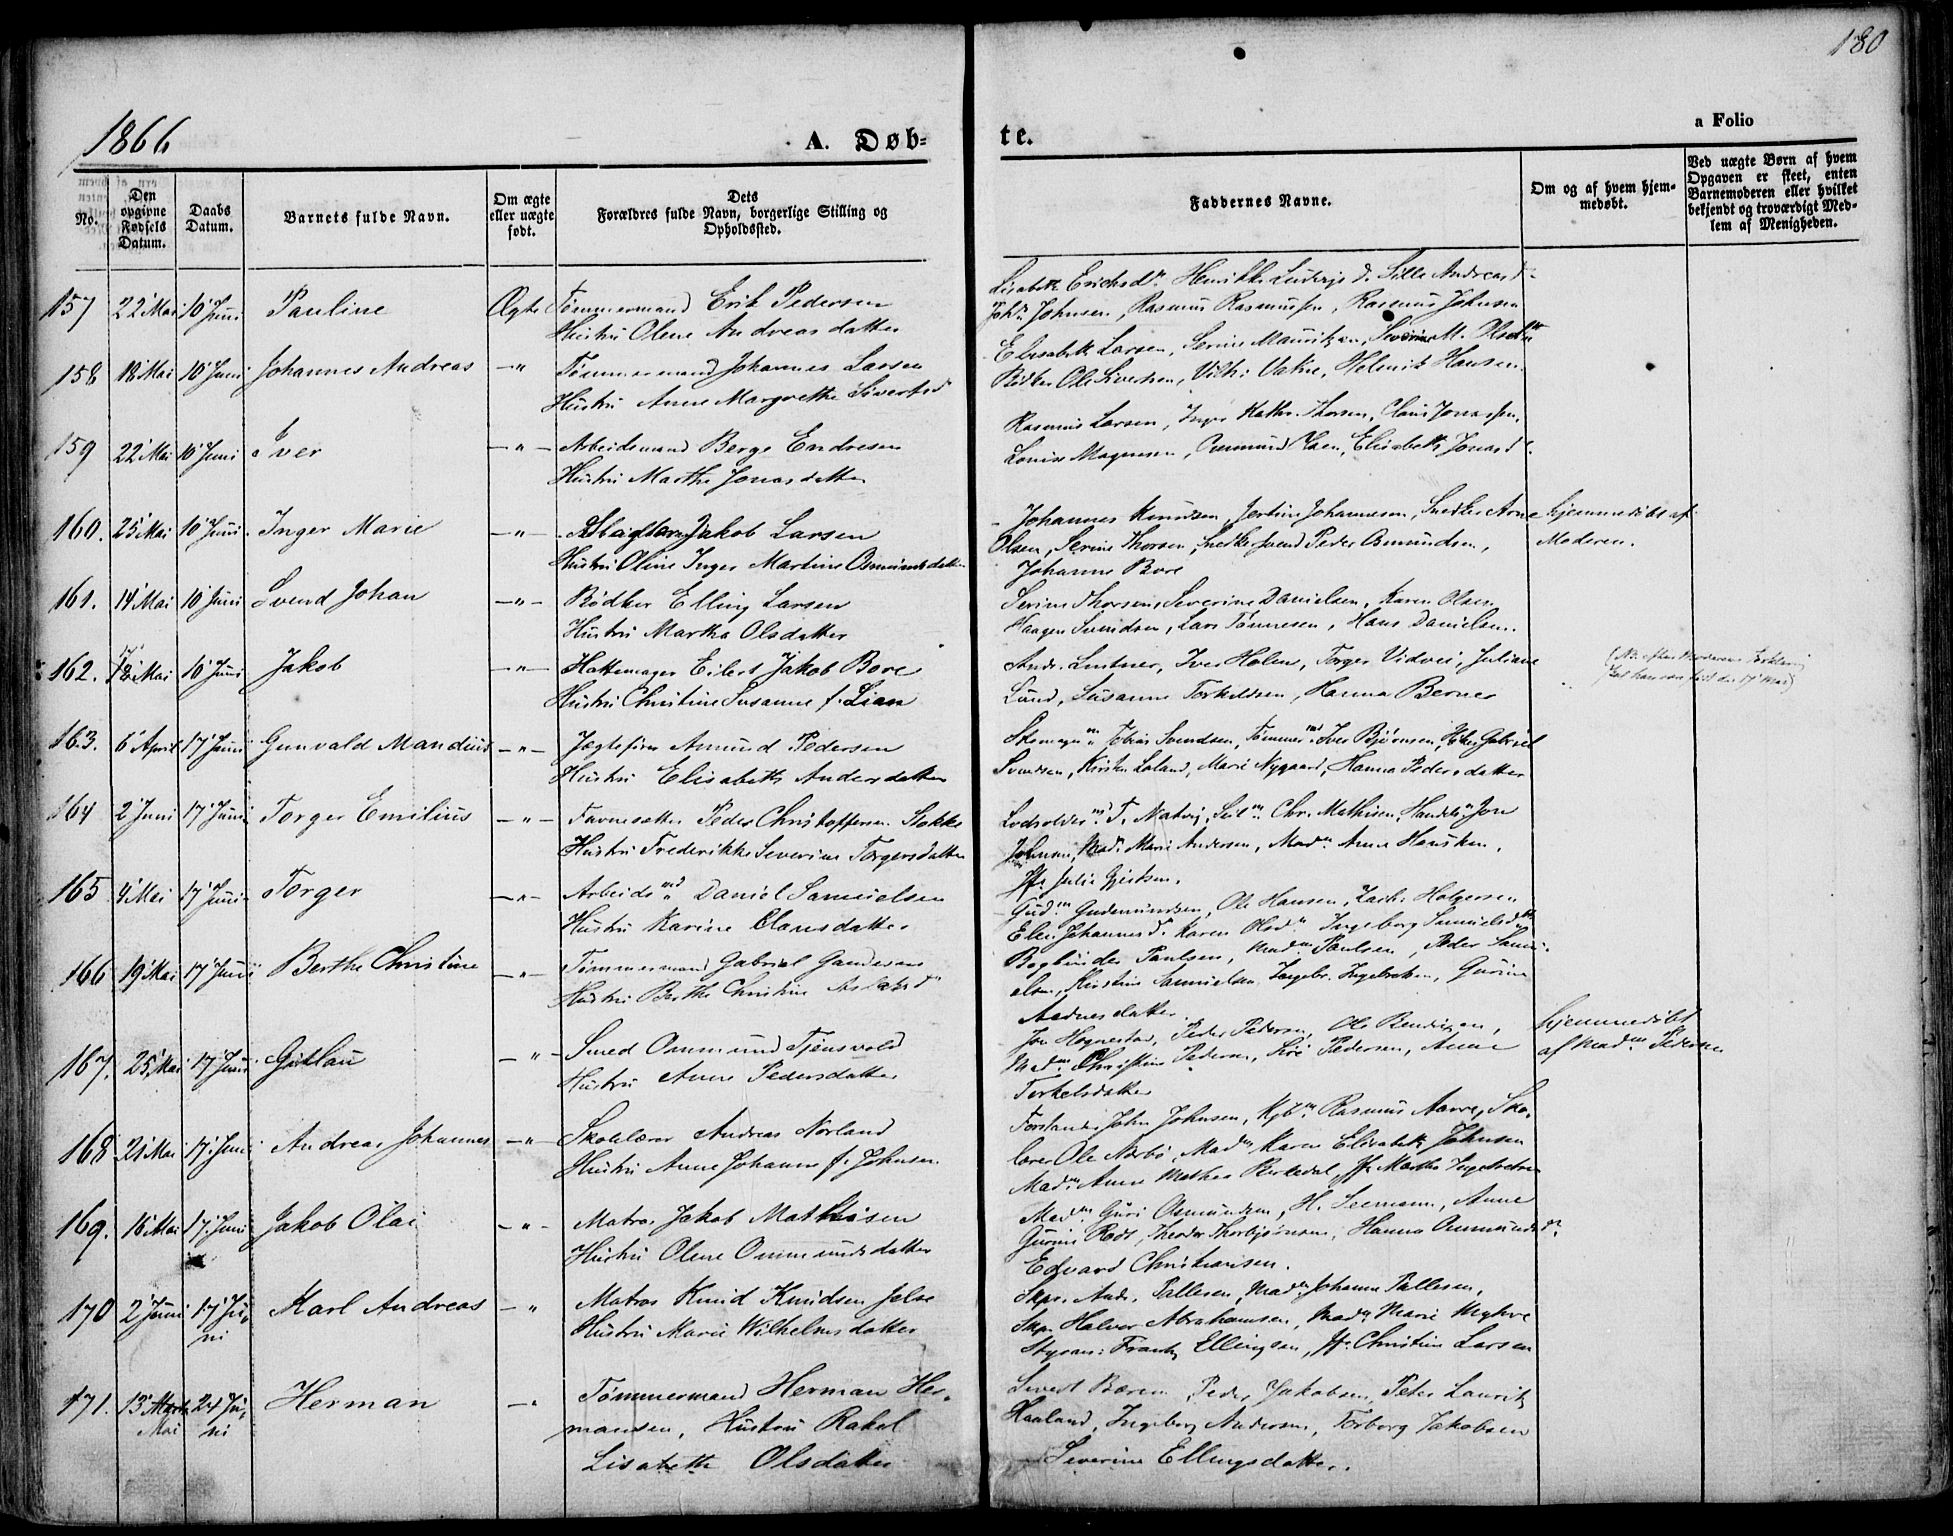 180
1866
A. Døb-
te.
a Folio
No.
Den opgivne Fødsels Datum.
Daabs Datum.
Barnets fulde Navn.
Om ægte eller uægte født.
Dets Forældres fulde Navn, borgerlige Stilling og Opholdssted.
Faddernes Navne.
Om og af hvem hjemmedøbt.
Ved uægte Børn af hvem Opgaven er skeet, enten Barnemoderen eller hvilket bekjendt og troværdigt Medlem af Menigheden.
157 22 Mai 10 Juni Pauline Ægte Tømmermand Erik Pedersen
Hustru Olene Andreasdatter
Lisabeth Erichsdr. Henrikke Ludvigs d. Sille Andreasd.
Johs. Johnsen, Rasmus Rasmussen, Rasmus Johnsen
158 18 Mai 10 Juni Johannes Andreas -"- Tømmermand Johannes Larsen
Hustru Anne Margrethe Sivertsd
Elisabeth Larsen, Serine Mauritzen, Severine M. Olsdtr
Bødker Ole Sivertsen, Vilh: Vatne, Helmik Hansen
159 22 Mai 10 Juni Iver -"- Arbeidsmand Berge Endresen
Hustru Marthe Jonasdatter
Rasmus Larsen, Inger Kathr. Thorsen, Claus Jonassen,
Louise Magnusen, Ommund, Elisabeth Jonasd.
160. 25 Mai 10 Juni Inger Marie -"- Jakob Larsen
Hustru Oline Inger Martine Osmundsdatter
Johannes Knudsen, Jertine Johannesen, Snedker Arne
Olsen, Serine Thorsen, Snedkersvend Peder Osmundsen,
Johanne Bore
hjemmedøbt af
Moderen.
161. 14 Mai 10 Juni Svend Johan -"- Bødker Elling Larsen
Hustru Martha Olsdatter
Serine Thorsen, Severine Danielsen, Karen Olsen
Haagen Svendsen, Lars Tønnesen, Hans Danielsen.
162. 18 Mai 10 Juni Jakob -"- Hattemager Eilert Jakob Bore
17
Hustru Christine Susanne f. Lian
Andr. Lintner, Iver Holen, Torger Vidvei, Juliane
Lund, Susanne Torkildsen, Hanna Berner
(NB. efter Moderens Forklaring
skal han være født den 17 Mai)
163. 6 April 17 Juni Gunvald Mandius -"- Jægtefører Amund Pedersen
Hustru Elisabeth Andersdatter
Skomagrm. Tobias Svendsen, Tømmermd. Iver Bjørnsen, Gabriel
Svendsen, Kirsten Laland, Marie Nygaard, Hanna Pedersdatter
164 2 Juni 17 Juni Torger Emilius -"- Favnesætter Peder Christoffersen Stokke
Hustru Frederikke Severine Torgersdatter
Lodsoldermd. T. Natvig, Seilm. Chr. Mathisen, Handelsm. Jon
Johnsen, Madm. Marie Andersen, Madm. Anne Hausken,
Jfr. Julie Gjertsen.
165 4 Mai 17 Juni Torger -"- Arbeidsmd Daniel Samuelsen
Hustru Karine Clausdatter
Gud. Gudmundsen, Ole Hansen, Zach. Holgersen
Elen Johannesd. Karen Olsdr. Ingeborg Samuelsdtr
166 19 Mai 17 Juni Berthe Christine -"- Tømmermand Gabriel Gundersen
Hustru Berthe Christine Aslaksd
Bogbinder Paulsen, Madm. Paulsen, Peder Samu-
elsen, Kirstine Samuelsen, Ingebr. Ingebretsen, Gurine
Aadnesdatter.
167. 25 Mai 17 Juni Gutlau -"- Smed Ommund Tjensvold
Hustru Anne Pedersdatter
Jon Hognestad, Peder Pedersen, Ole Bendixen,
Madm. Christine Pedersen, Siri Pedersen, Anne
Torkelsdatter
hjemmedøbt
af Madm. Pedersen
168 21 Mai 17. Juni Andreas Johannes -"- Skolelærer Andreas Norland
Hustru Anne Johanne f. Johnsen
Forstander John Johnsen, Kjbm. Rasmus Aarre, Sko-
lærer Ole Nærbø, Madm. Karen Elisabeth Johnsen
Madm. Anne Mathea, Jfr. Marthe Ingebretsen
169. 16 Mai 17. Juni Jakob Olai -"- Matros Jakob Mathisen
Hustru Olene Ommundsdatter
Madm. Guri Osmundsen, H. Seemann, Anne
Gurine Rødt, Theodor Thorbjørnsen, Hanna Ommundsdr.
Edvard Christiansen.
170 2 Juni 17 Ju-ni Karl Andreas -"- Matros Knud Knudsen Jelse
Hustru Marie Wilhelmsdatter
Skpr. Andr. Pallesen, Madm. Johanne Pallesen,
Skpr. Halvor Abrahamsen, Madm. Marie Myhre
Styrm: Frantz Ellingsen, Jfr. Christine Larsen
171. 13 Mai 24 Ju-ni Herman -"- Tømmermand Herman Her-
mansen, Hustru Rakel
Lisabeth Olsdatter
Sivert Bærem, Peder Jakobsen, Peter Lauritz
Haaland, Ingeborg Andersen, Torborg Jakobsen
Severine Ellingsdatter.